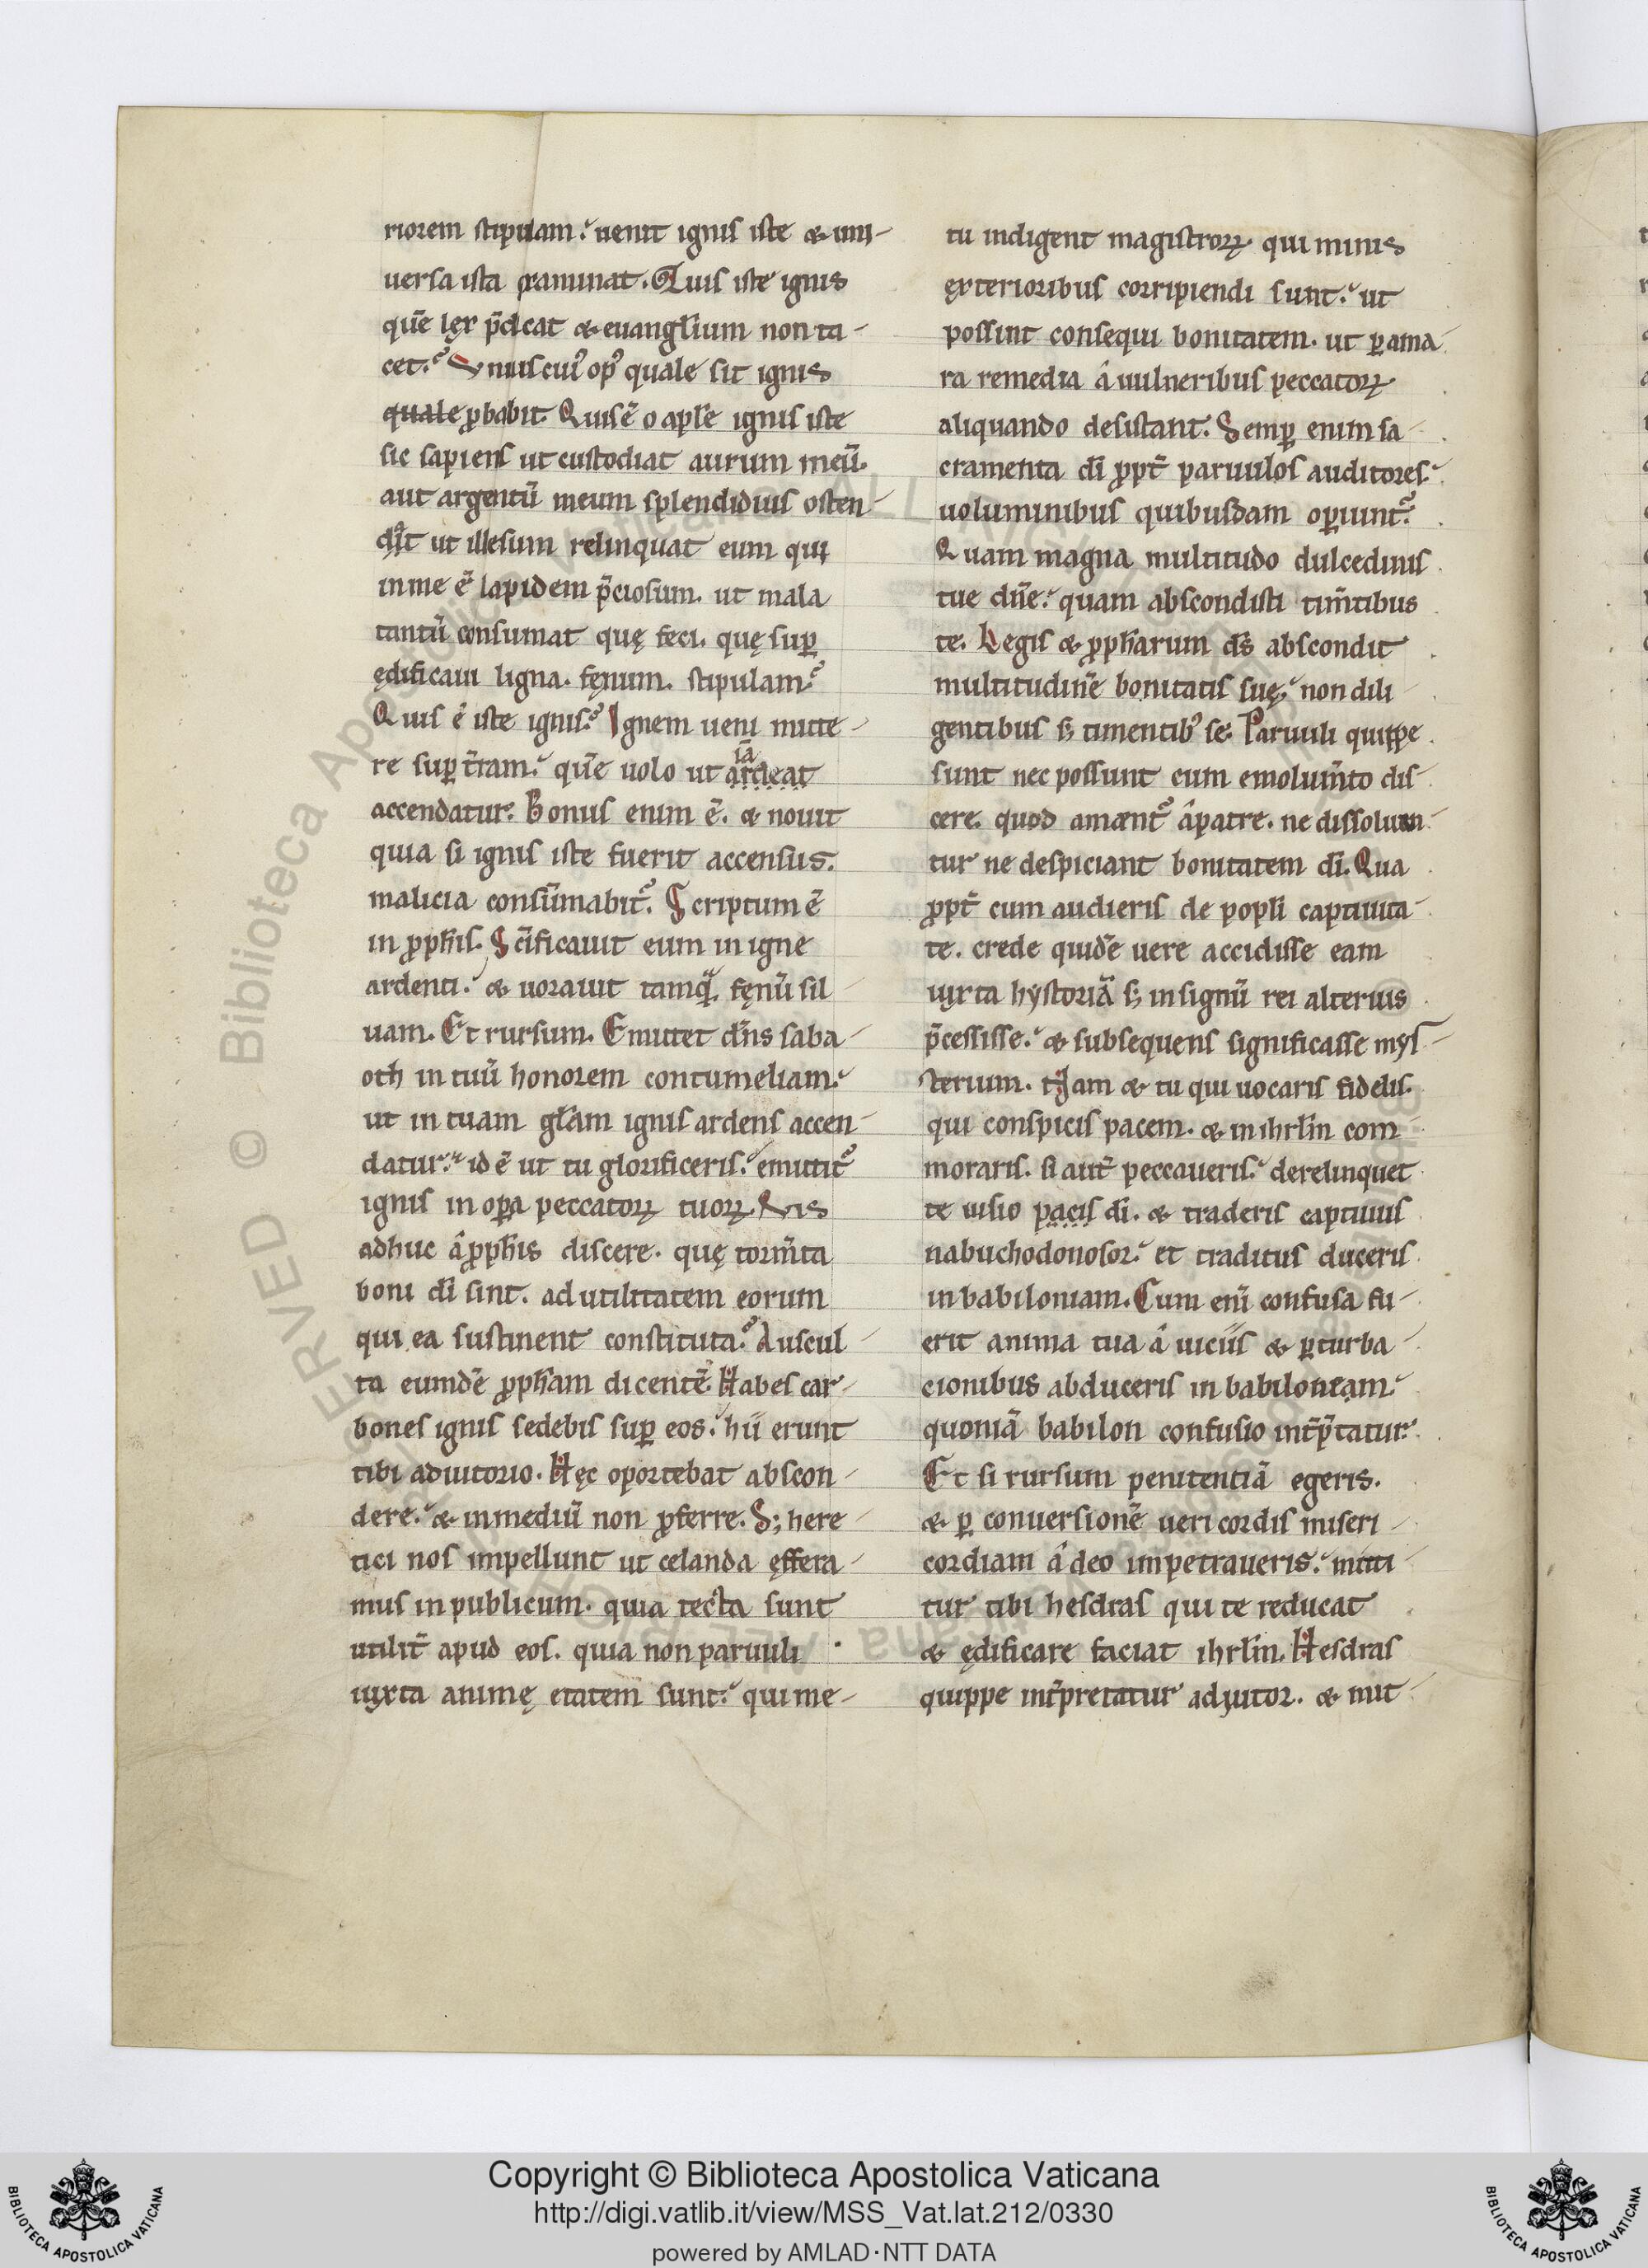 riorem stipulam. uenit ignis iste & uni-
uersa ista examinat. Quis iste ignis
quē lęx p̄dicat & euangl̄ium non ta-
cet. Vniuscuiꝰ opꝰ quale sit ignis
quale ꝓbabit. Quis ē o apl̄e ignis iste
sic sapiens ut custodiat aurum meū.
aut argentū meum splendidius osten-
ut illesum relinquat eum qui
in me ē lapidem p̄ciosum. ut mala
tantū consumat quę feci. quę suꝑ
ędificaui ligna. fęnum. stipulam.
Quis ē iste ignis. Ignem ueni mitte-
re suꝑ t̄ram. quē uolo ut ardeat iā
accendatur. Bonus enim ē. & nouit
quia si ignis iste fuerit accensus.
malicia consūmabit᷑. Scriptum ē
in ꝓph̄is. Sc̄ificauit eum in igne
ardenti. & uorauit tamq̄. fęnū sil-
uam. Et rursum. Emittet dn̄s saba-
oth in tuū honorem contumeliam.
ut in tuam gl̄am ignis ardens accen-
datur. id ē ut tu glorificeris. emittit᷑
ignis in oꝑa peccatoꝝ tuoꝝ. Vis
adhuc a ꝓph̄is discere. quę torm̄ta
boni dī sint. ad utilitatem eorum
qui ea sustinent constituta. Auscul-
ta eundē ꝓph̄am dicentē. Habes car-
bones ignis sedebis suꝑ eos. hii erunt
tibi adiutorio. Hęc oportebat abscon-
dere. & in mediū non ꝓferre. S; here-
tici nos impellunt ut celanda ęffera-
mus in publicum. quia tecta sunt
utilit̄ apud eos. quia non paruuli
iuxta animę etatem sunt. qui me-
tu indigent magistroꝝ qui minis
ęxterioribus corripiendi sunt. ut
possint consequi bonitatem. ut ꝑ ama-
ra remedia a uulneribus peccatoꝝ
aliquando desistant. Semꝑ enim sa-
cramenta dī ꝓpt̄ paruulos auditores.
uoluminibus quibusdam oꝑiunt᷑.
Quam magna multitudo dulcedinis
tue dn̄e. quam abscondisti tim̄tibus
te. Legis & ꝓph̄arum ds̄ abscondit
multitudinē bonitatis suę. non dili-
gentibus s; timentibꝰ se. Paruuli quippe
sunt nec possunt cum emolum̄to dis-
cere. quod amænt᷑ a patre. ne dissoluan-
tur ne despiciant bonitatem dī. Qua
ꝓpt̄ cum audieris de popl̄i captiuita-
te. crede quidē uere accidisse eam
iuxta hystoriā s; in signū rei alterius
p̄cessisse. & subsequens significasse mys-
terium. Nam & tu qui uocaris fidelis.
qui conspicis pacem. & in ihrl̄m com-
moraris. si aut̄ peccaueris. derelinquet
te uisio pacis dī. & traderis captiuus
nabuchodonosor. et traditus duceris
in babiloniam. Cum enī confusa fu-
erit anima tua a uiciis & ꝑturba-
cionibus abduceris in babiloniam.
quoniā babilon confusio int̄p̄tatur.
Et si rursum penitentiā egeris.
& ꝑ conuersionē ueri cordis miseri-
cordiam a deo impetraueris. mitti-
tur tibi hesdras qui te reducat
& ędificare faciat ihrl̄m. Hesdras
quippe int̄pretatur adiutor. & mit-
Copyright © Biblioteca Apostolica Vaticana
http://digi.vatlib.it/view/MSS_Vat.lat.212/0330
powered by AMLAD·NTT DATA
BIBLIOTECA APOSTOLICA VATICANA
BIBLIOTECA APOSTOLICA VATICANA